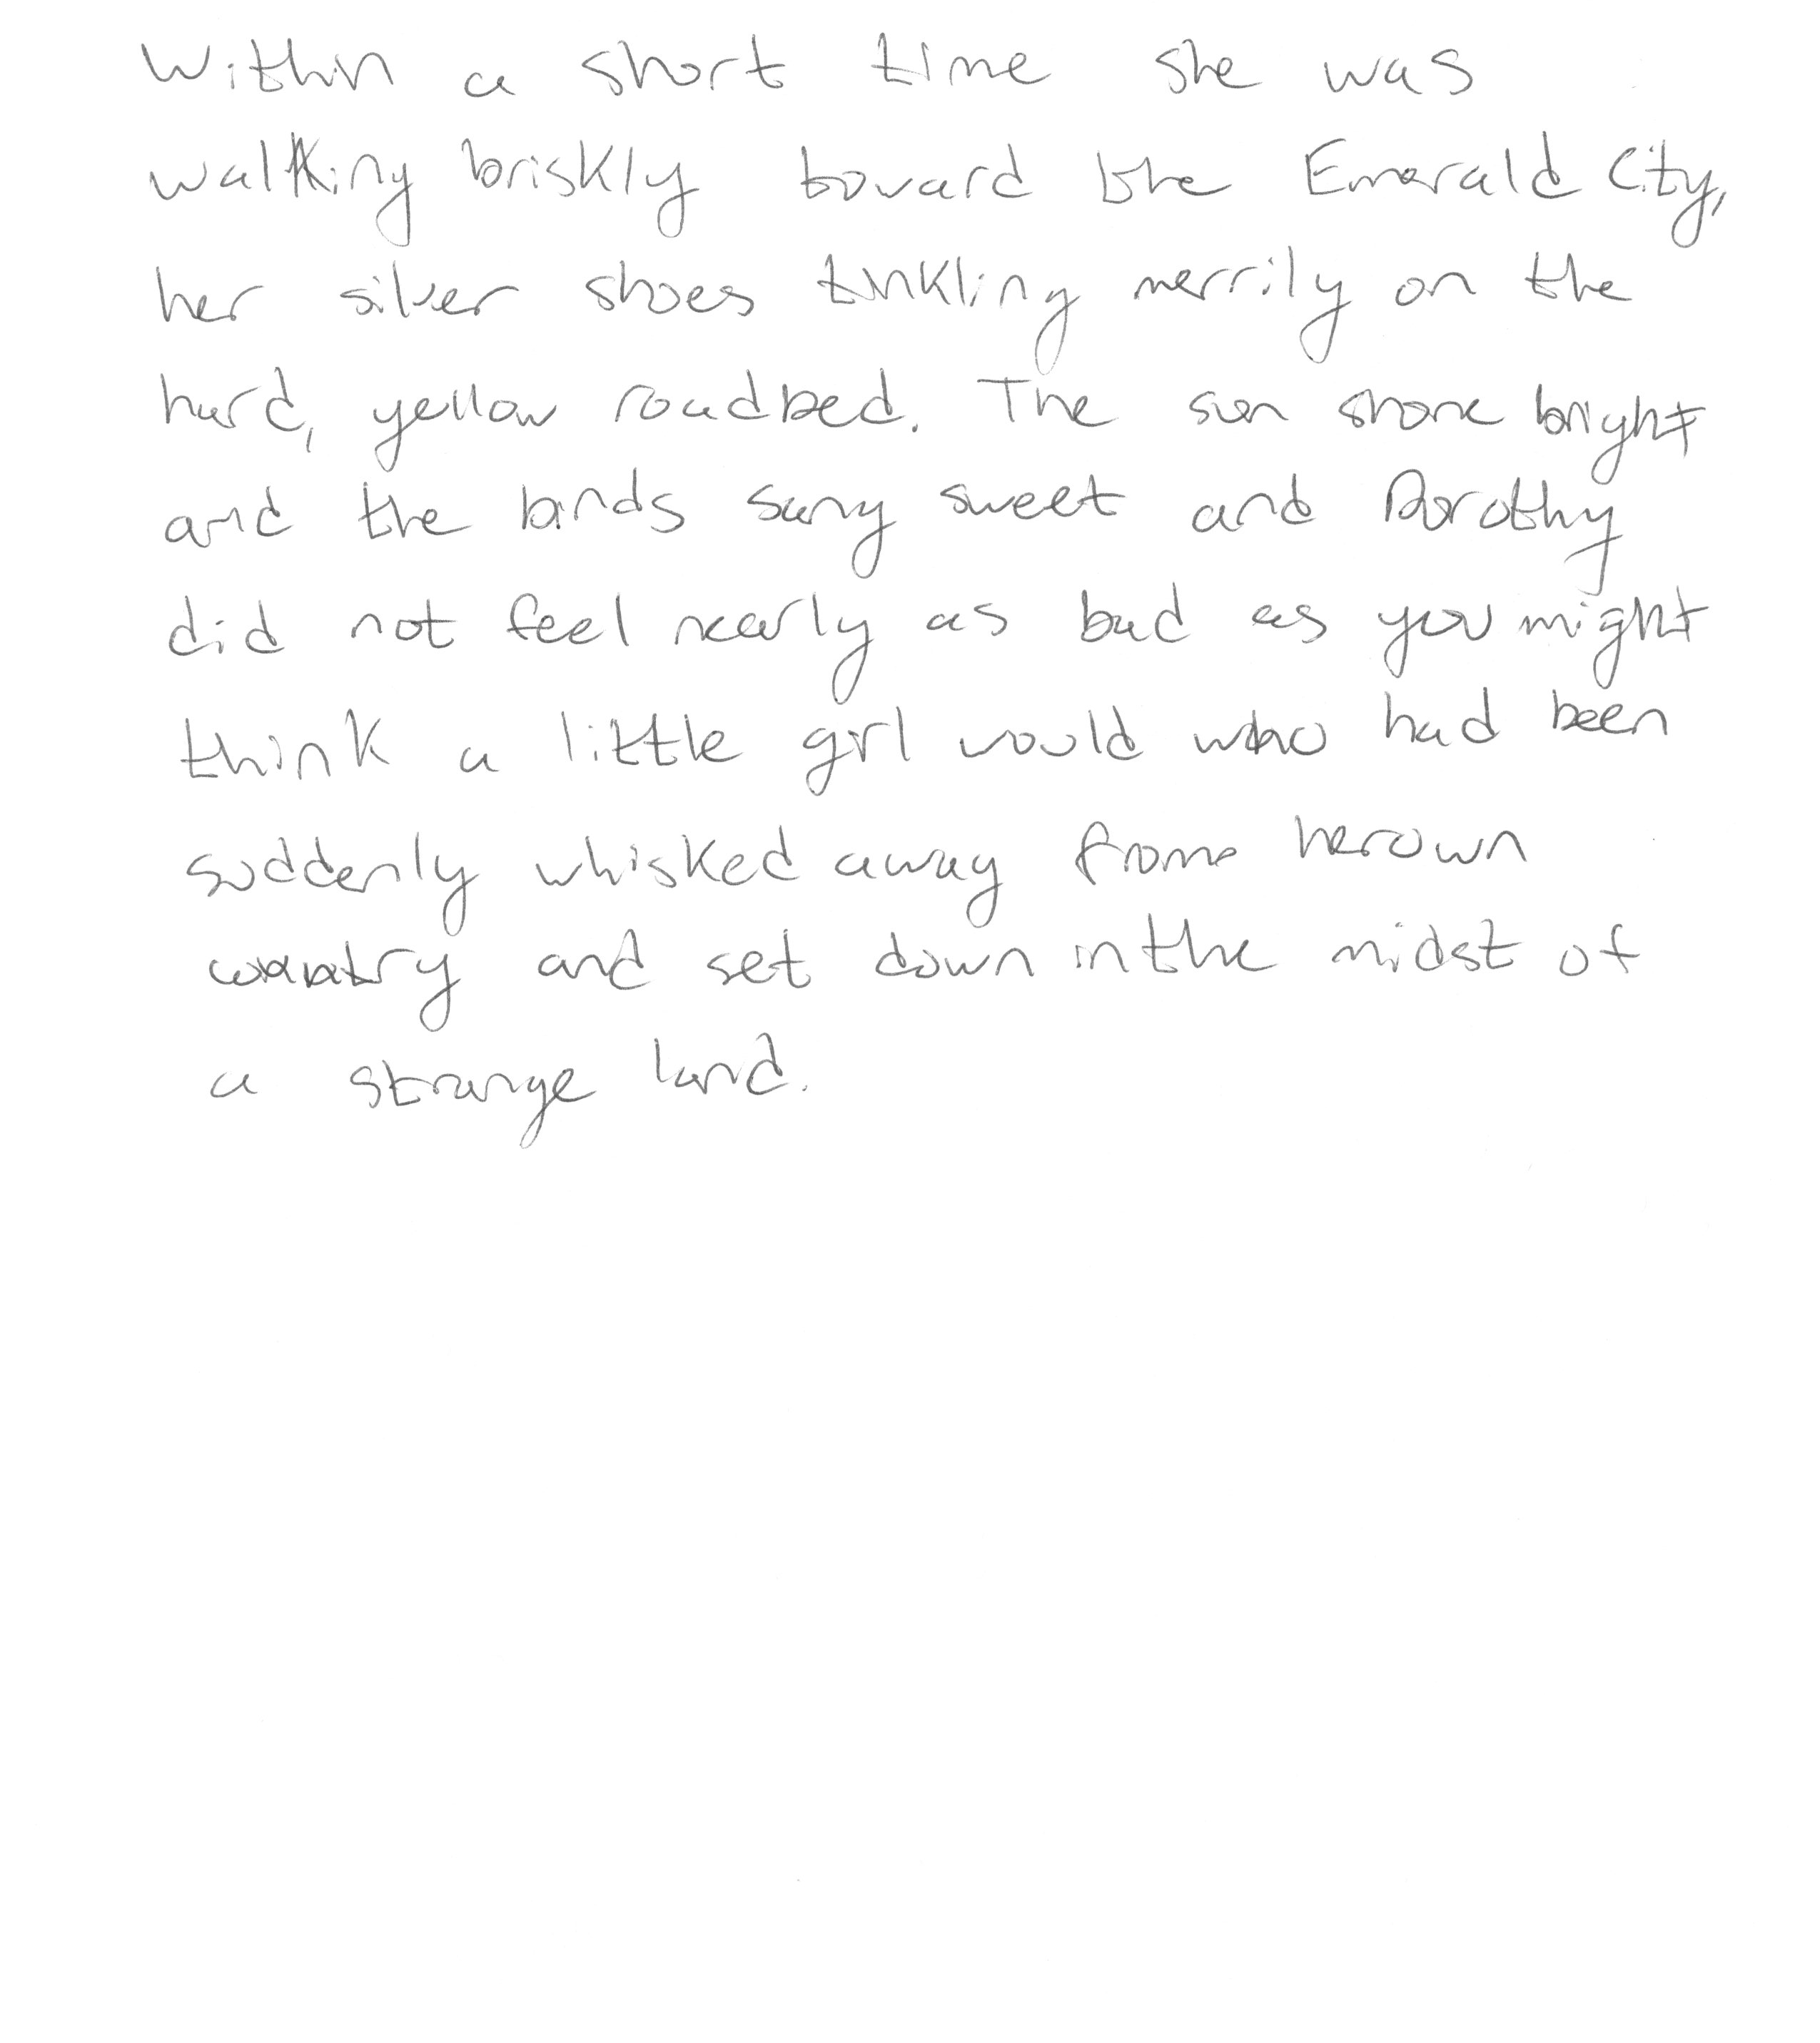 Within a short time she was
walking briskly toward the Emerald City,
her silver shoes tinkling merrily on the
hard, yellow roadbed. The sun shone bright
and the birds sang sweet and Dorothy
did not feel nearly as bad as you might
think a little girl would who had been
suddenly whisked away from her own
country and set down in the midst of
a strange land.